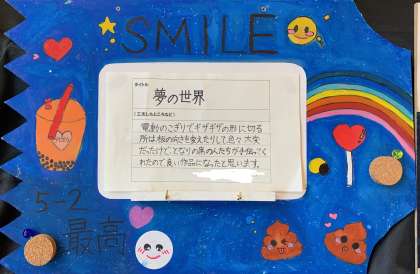 SMILE
タイトル
夢の世界
(工夫したところなど)
電動のこぎりでギザギザの形に切る
所は板の向きを変えたりして色々大変
だったけど、となりの席の人たちが手伝ってく
れたので良い作品になったと思います。
5-2
最高